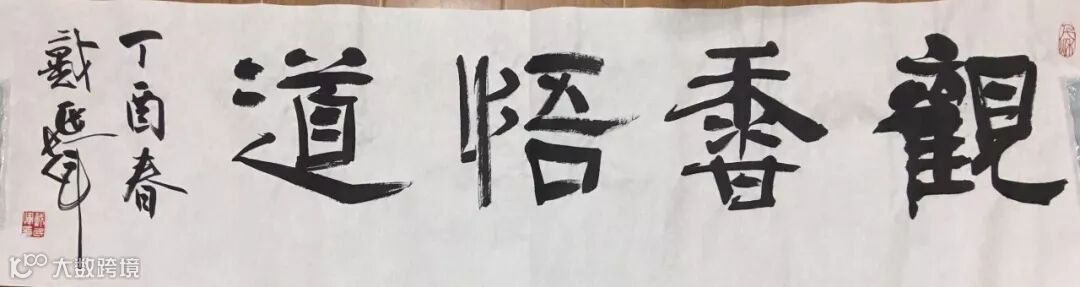 觀香悟道
丁酉春
戴延
大数跨境